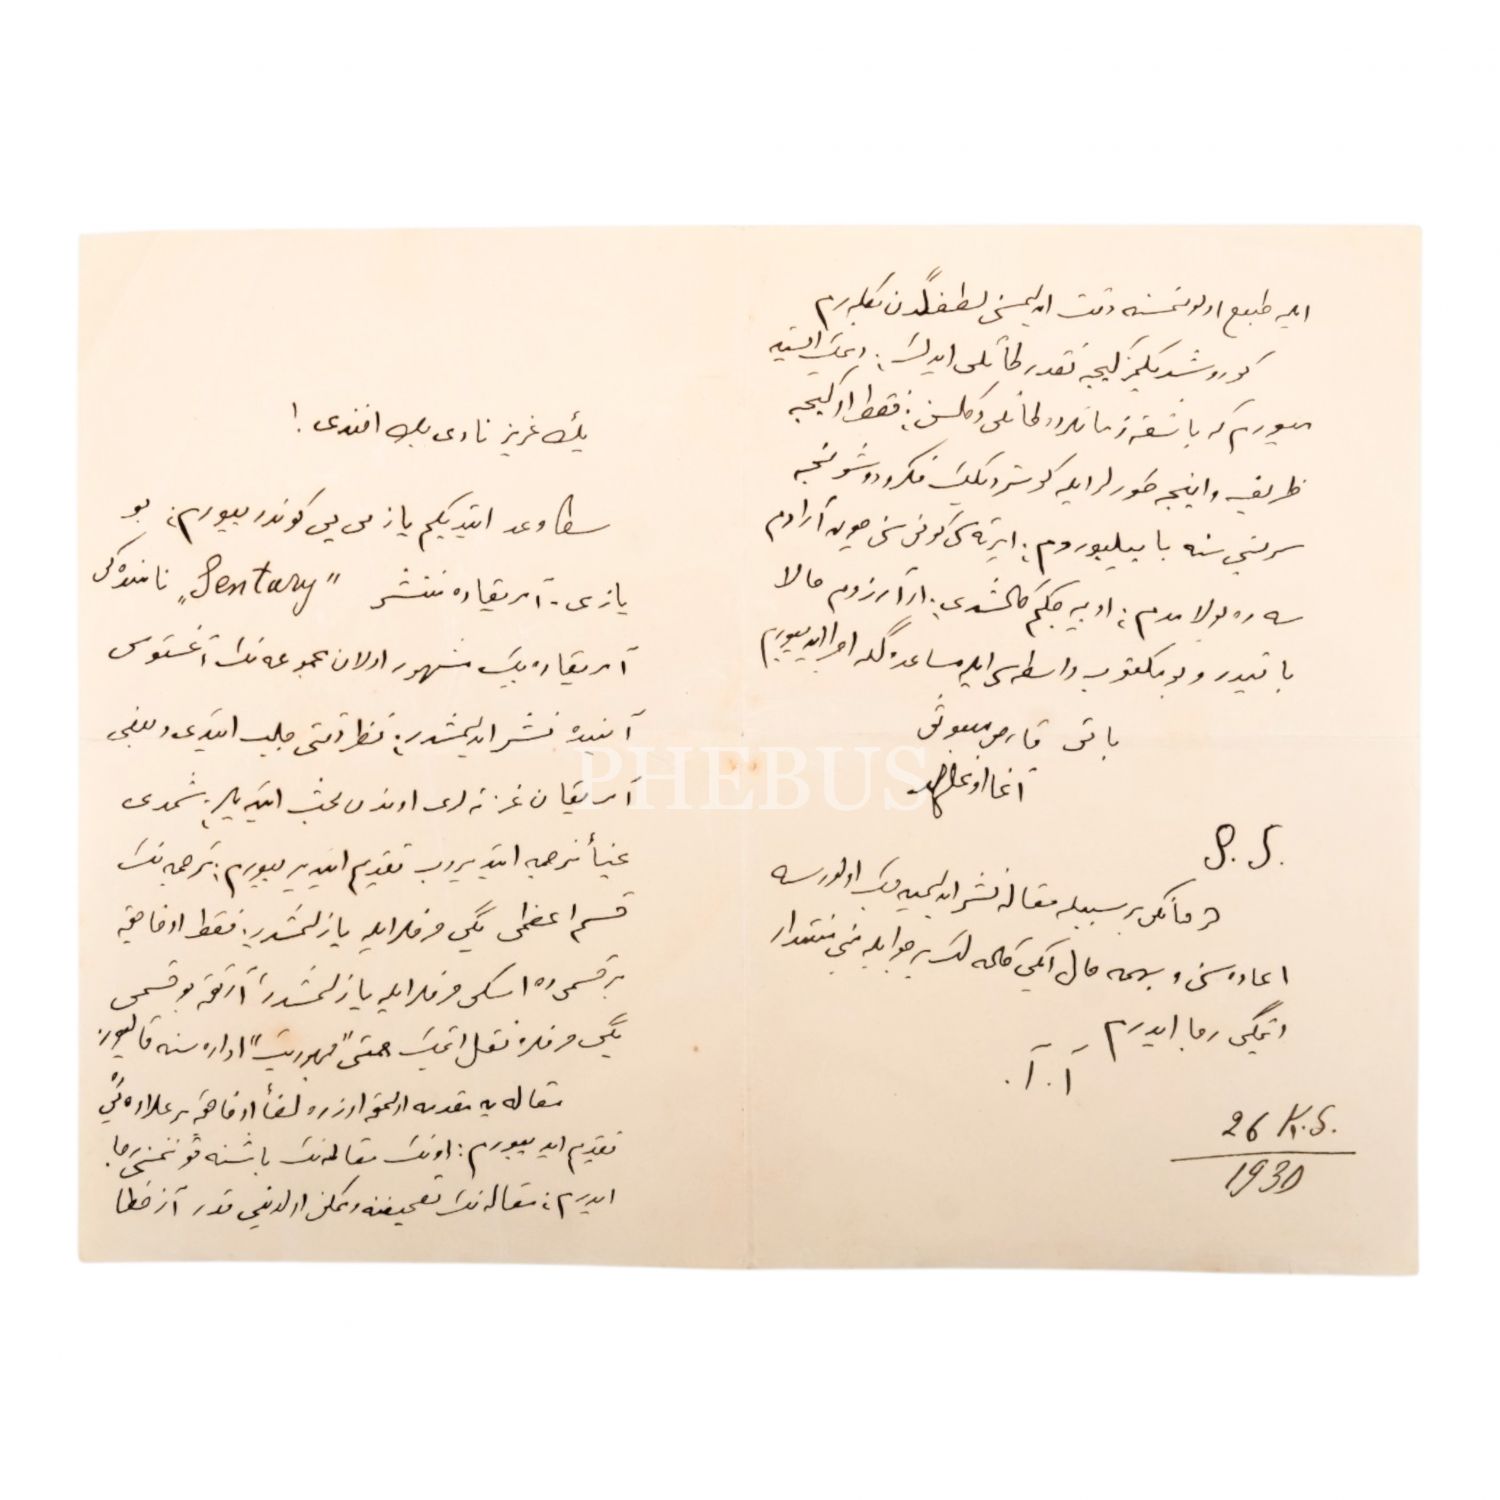 پك عزيز نادی بك افندی!
سزه وعد ایتدیكم یازی یی كوندریيورم؛ بو
یازی - آمریقاده منتشر „Sentary" نامنده كی
آمریقاده پك مشهور اولان مجموعه نك آغستوس
آینده نشر ایدلمشدر؛ نظر دقتی جلب ایتدی و بعضی
آمریقان غزته لری اوندن بحث ایتدیلر؛ شمدی
عیناً ترجمه ایتدیروب تقدیم ایدیيورم؛ ترجمه نك
قسم اعظمی یكی حرفلرایله یازلمشدر؛ فقط اوفاجق
بر قسمی ده اسكی حرفلر ایله یازلمشدر؛ آرتق بو قسمی
یكی حرفلره نقل ایتمك حتی "جمهوریت" اداره سنه قالیور.
مقاله یه مقدمه اولمق اوزره لفاً اوفاجق بر علاوه یی
تقدیم ایدیيورم؛ اونك مقاله نك باشنه قونمسنی رجا
ایدرم؛ مقاله نك تصحیحنه و ممكن اولدیغی قدر آز خطا
PHEBUS
ایله طبع اولونمسنه دقت ایدلمسنی لطفكزدن بكلرم
كوروشدیكمز كیجه نقدر طاتلی ایدی؛ دیمك ایسته
میورم كه باشقه زمانلرده طاتلی دكلسن؛ فقط او كیجه
ظریف و اینجه طورلر ایله كوستردیكك فكر و دوشونجه
سربستیسنه بایيلیوروم؛ ایرته سی كونی سنی چوق آرادم
سه ده بولامدم؛ اوپه جكم كلمشدی؛ او آرزوم حالا
باقیدر و بو مكتوب واسطه سی ایله مساعده كله اجرا ایدیيورم
باقی قارص مبعوثی
آغا اوغلو احمد
P. S.
هر هانكی بر سببله مقاله نشر ایدلمیه جك اولورسه
اعاده سنی و بهمه حال ایكی كلمه لك بر جوابله بنی منتدار
ایتمكی رجا ایدرم
آ. آ.
26 K. S.
1930